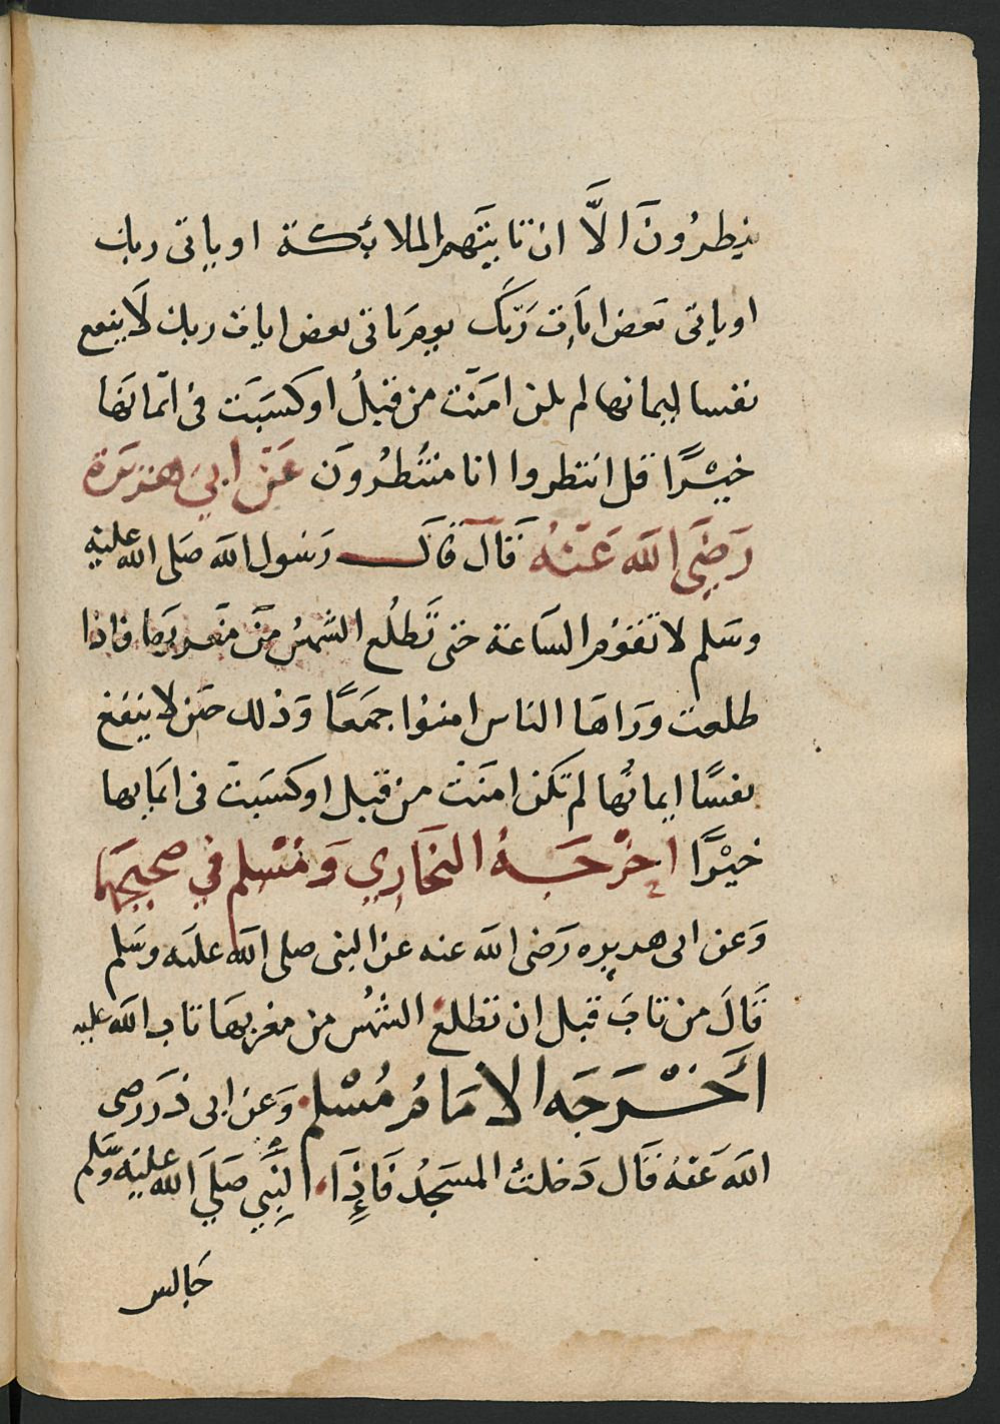 ينظرون الَّا ان تا يتَهم الملائكة او ياتى ربك
او ياتى بَعض ايَات رَبّكَ يوم يَاتى بعض ايات ربك لَا ينفع
نفسا ايمانها لم تكن امَنَت من قبلُ او كسَبَت فى ايمانهَا
خيْرًا قل انتظروا انا منتَظرُونَ عَن ابي هريرَة
رَضِيَ اللَه عَنهُ قَالَ قَالَ رَسُول اللَه صَلى اللَه عليه
وسَلم لا تَقوُم السَاعة حَتى تَطلُع الشمسُ من مَغربهَا فاذا
طلعت وَرَاهَا الناس امنوُا جمَعًا وَذلك حَين لا ينفع
نفسًا ايمانُها لم تَكن امَنَت من قبل او كسَبَت فى ايمانها
خيْرًا اخرْجَهُ البخَارِي وَمُسْلم في صحيحَيهمَا
وَعن ابى هديره رَضى اللَه عنه عن النبى صلى اللَه عليَه وسَلم
قَالَ من تابَ قبل ان تطلع الشمْسُ من مغربهَا تاب اللَه عليه
أَخْرَجَه الامَامُ مُسْلم وَعن ابى ذَر رضى
اللَه عَنهُ قَال دَخلتُ المسَجْدُ فَاِذَا النِّبَي صَلَي اللَه عليَه وَسَلم
جَالس